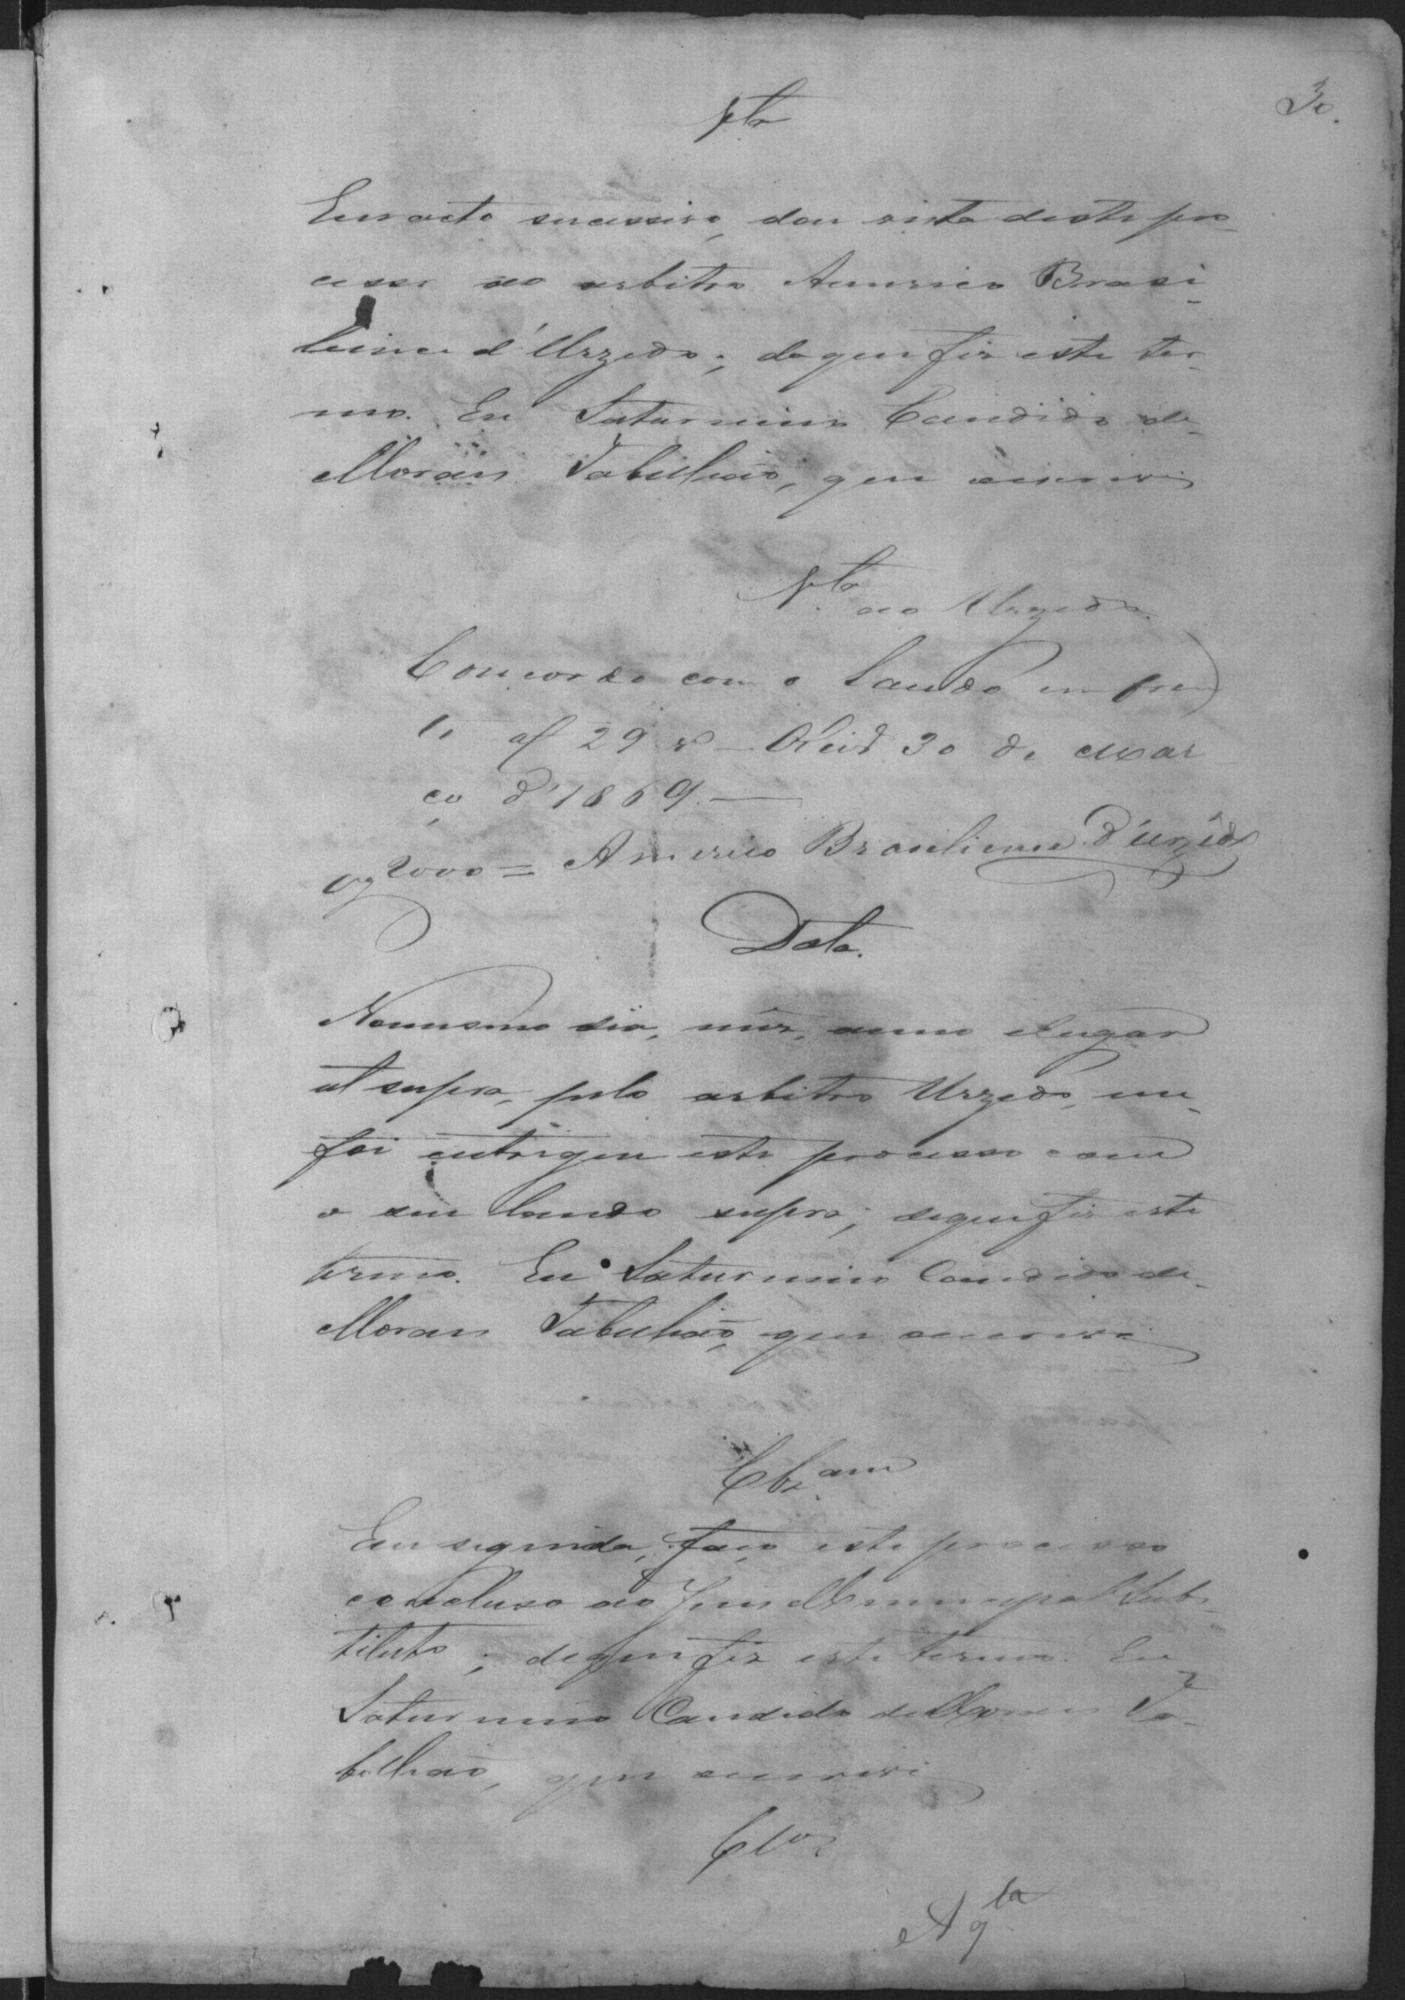 30.
Vta
Em acto sucessivo, dou vista deste pro-
cesso ao arbitro Americo Brasi-
liense d'Urzedo; do que fiz este ter-
mo. Eu Saturnino Candido de
Moraes Tabellião, que escrevi
Vta ao Urzedo.
Concordo com o laudo em fren
te af 29 v — 30 de Mar
ço d'1869. —
2000 = Americo Brasiliense d'Urzêdo
Data.
No mesmo dia, mez, anno e lugar
ut supra, pelo arbitro Urzedo, me
foi entregue este processo com
o seu laudo supra; de que fiz este
termo. Eu Saturnino Candido de
Moraes Tabellião, que escrevi
Clzam
Em seguida, faço este processo
concluso ao Juiz Municipal Subs-
tituto; de que fiz este termo. Eu
Saturnino Candido de Moraes Ta-
bellião, que escrevi
Clos